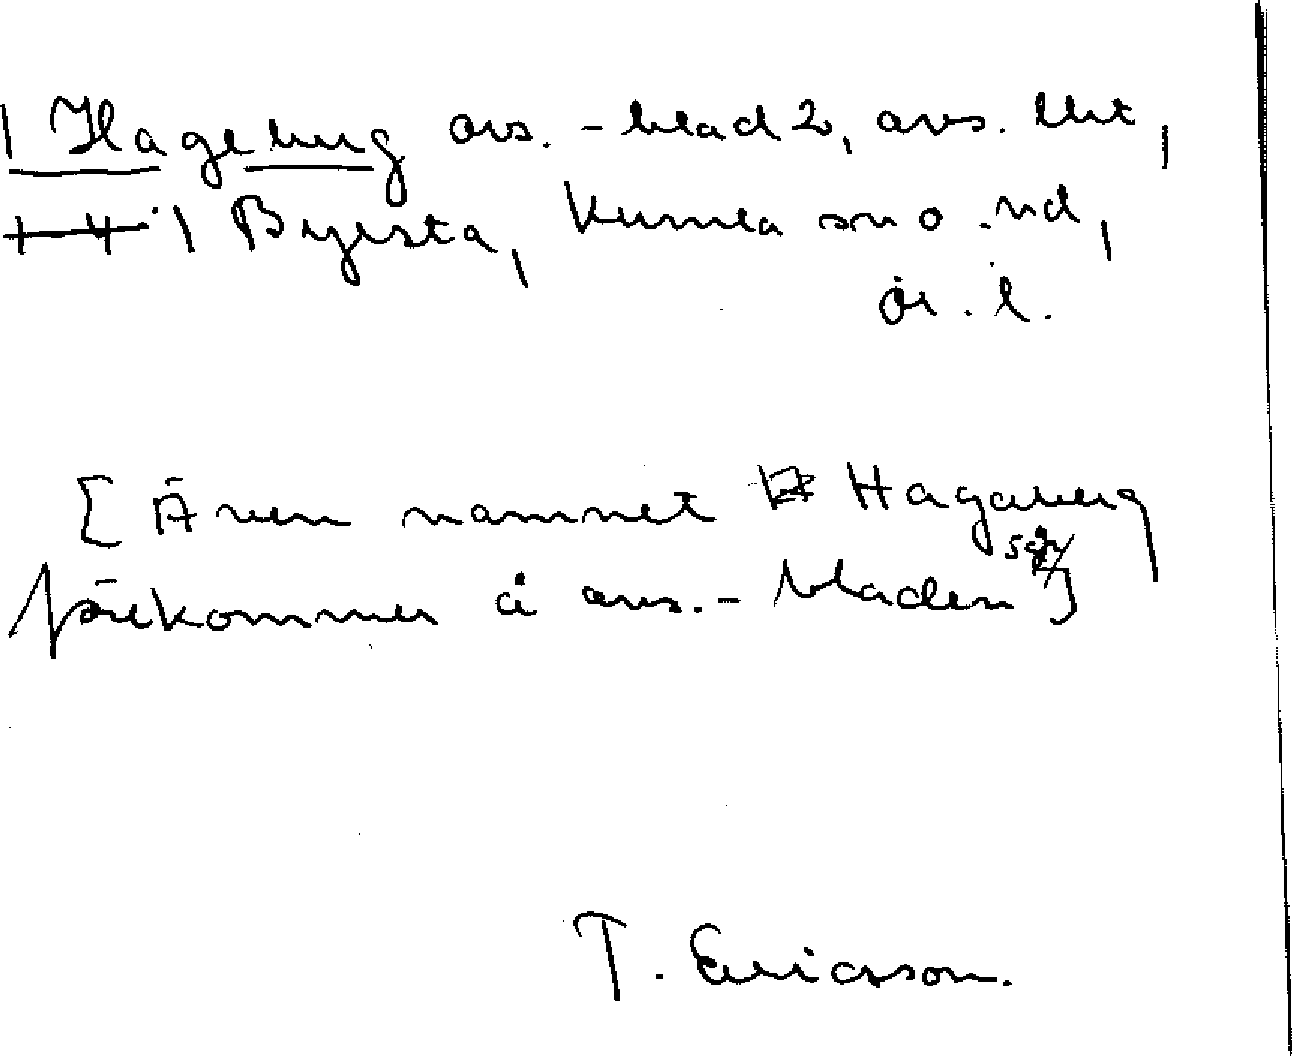 | Hageberg avs.-blad 2, avs. lht,
1 Byrsta, Kumla sn o. hd,
Ör. l.
[Även namnet Hagaberg
förekommer å avs.-bladen]
T. Ericsson.